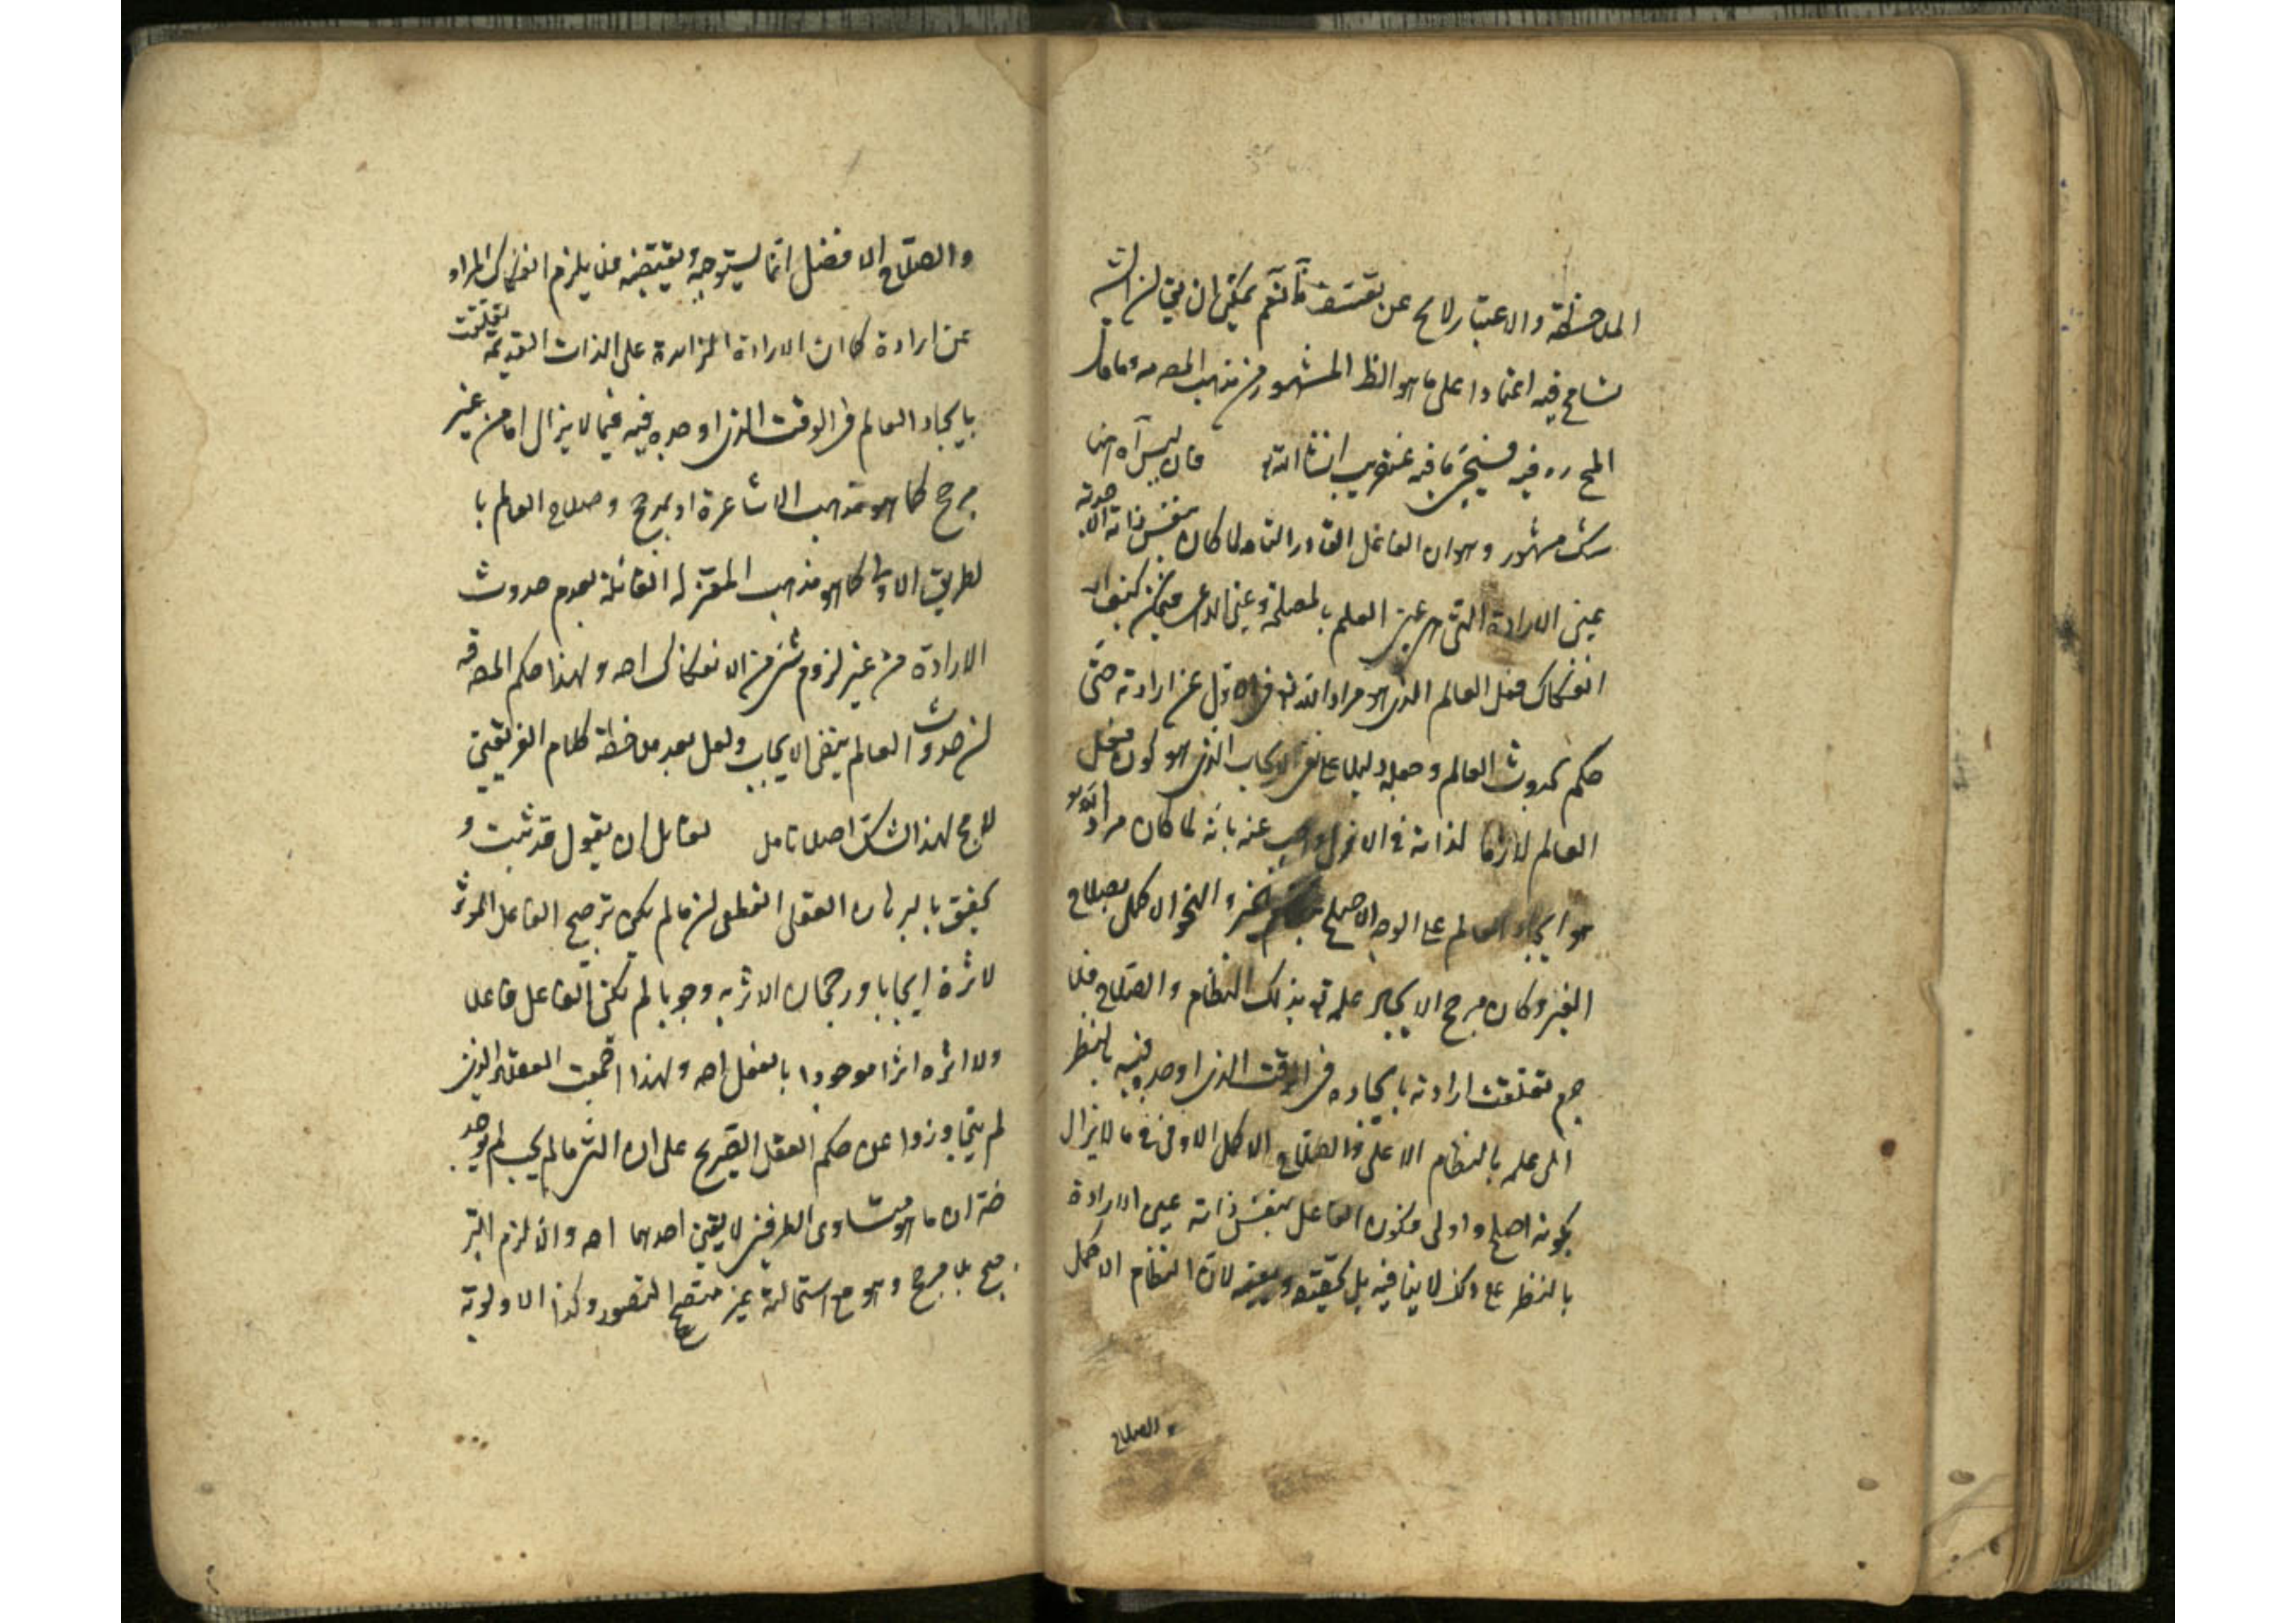 الملاحظة والاعتبار لايخ عن تعسف ما نعم يمكن ان يق ان الش
تسامح فيه اعتمادا على ما هو الظ المشهور من مذهب المص
المح ره فيه فسيجئ ما فيه عنقريب انشا الله قال ليس آه اهنا
شك مشهور وهو ان الفاعل القادر التام لما كان بنفس ذاته الا حدية
عين الارادة التي هي عين العلم بالمصلحة وعين الداعي فكيف
انفكاك فعل العالم الذي هو مراد الله تع في الازل عن ارادته حتى
حكم بحدوث العالم وجعله دليلا على نفي الايجاب الذي هو كون فعل
العالم لازما لذاته في الازل واجيب عنه بانه لما كان مراد الله تع
هو ايجاد العالم على الوجه الاصلح الخير والنحو الاكمل بصلاح
الغير وكان مرجح الايجاد علمه تع بذلك النظام والصلاح فلا
جرم تعلقت ارادته بايجاده في الوقت الذي اوجده فيه بالنظر
الى علمه بالنظام الاعلى والصلاح الاكمل الاوفى في ما لايزال
بكونه اصلح واولى فكون الفاعل بنفس ذاته عين الارادة
بالنظر على ذلك لا ينافيه بل يحققه لان النظام الاكمل
والصلاح
والصلاح الافضل انما يستوجبه ويقتضيه فلا يلزم انفكاك المراد
عن ارادة كما ان الارادة الزايدة على الذات القديمة تعلقت
بايجاد العالم في الوقت الذي اوجده فيه فيما لايزال اما من غير
مرجح كما هو مذهب الاشاعرة او بمرجح وصلاح العالم با
لطريق الاولى كما هو مذهب المعتزلة القائلة بعدم حدوث
الارادة من غير لزوم شئ من الانفكاك اهـ ولهذا حكم المص
ان حدوث العالم ينفى الايجاب ولعل بعد ملاحظة كلام الفريقين
لايخ لهذا الشك اصلا تامل لقائل ان يقول قد ثبت و
تحقق بالبرهان العقلي القطعي ان ما لم يكن ترجيح الفاعل المؤثر
لاثره ايجابا ورجحان الاثر به وجوبا لم يكن الفاعل فاعلا
ولا اثره اثرا موجودا بالفعل اهـ ولهذا اجمعت العقلاء الذين
لم يتجاوزوا عن حكم العقل الصريح على ان الشئ ما لم يجب لم يوجد
ضرة ان ما هو متساوي الطرفين لا يقع احدهما اهـ والا لزم التر
جيح بلا مرجح وهو مع استحالته غير متضح التصور وكذا الاولوية